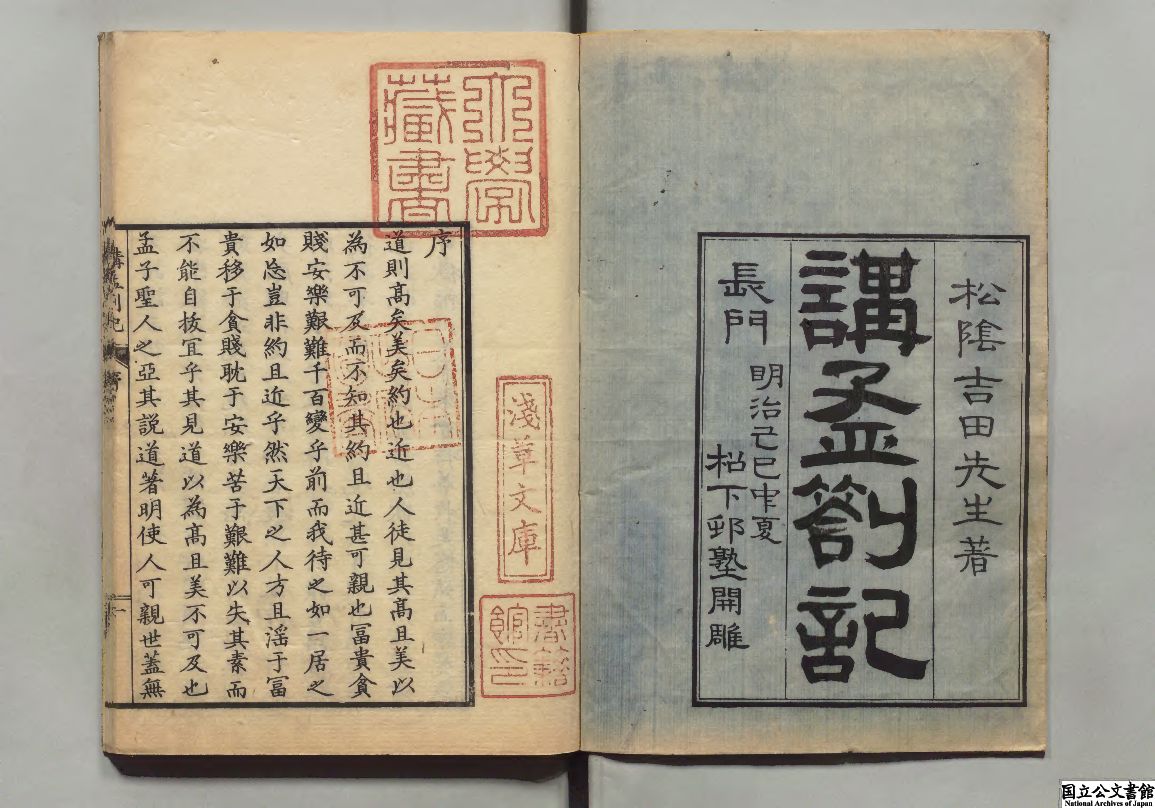 松陰吉田先生著
講孟劄記
明治己巳中夏
長門
松下邨塾開雕
大學藏書
淺草文庫
書籍館印
序
道則髙矣美矣約也近也人徒見其髙且美以
為不可及而不知其約且近甚可親也冨貴貧
賤安樂艱難千百變乎前而我待之如一居之
如忘豈非約且近乎然天下之人方且淫于冨
貴移于貧賤耽于安樂苦于艱難以失其素而
不能自拔冝乎其見道以為髙且美不可及也
孟子聖人之亞其説道著明使人可親世蓋無
一
国立公文書館
National Archives of Japan